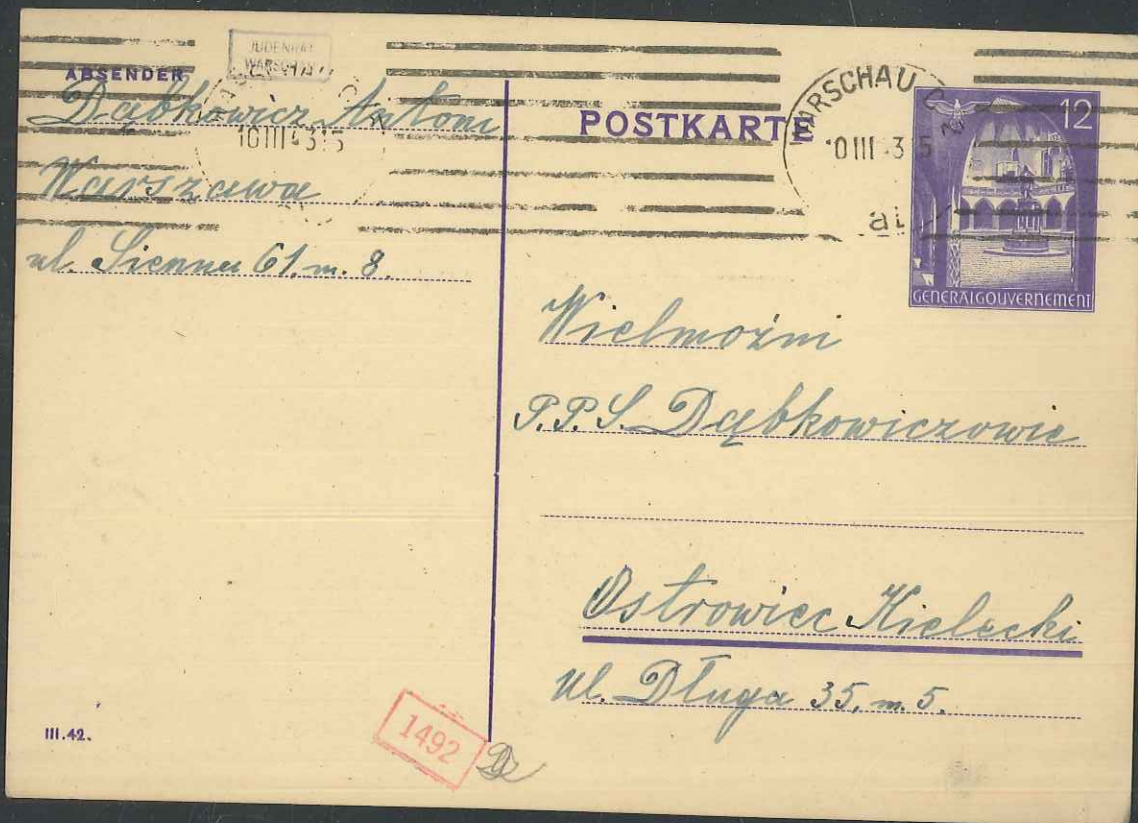 JUDENRAT
WARSCHAU
ABSENDER
Dąbkowicz Antoni
Warszawa
ul. Sienna 61. m. 8.
10 III 43 15
POSTKARTE
WARSCHAU C
10 III 43 15
12
GENERALGOUVERNEMENT
Wielmożni
P.P.S. Dąbkowiczowie
Ostrowiec Kielecki
ul. Długa 35. m. 5.
III.42.
1492